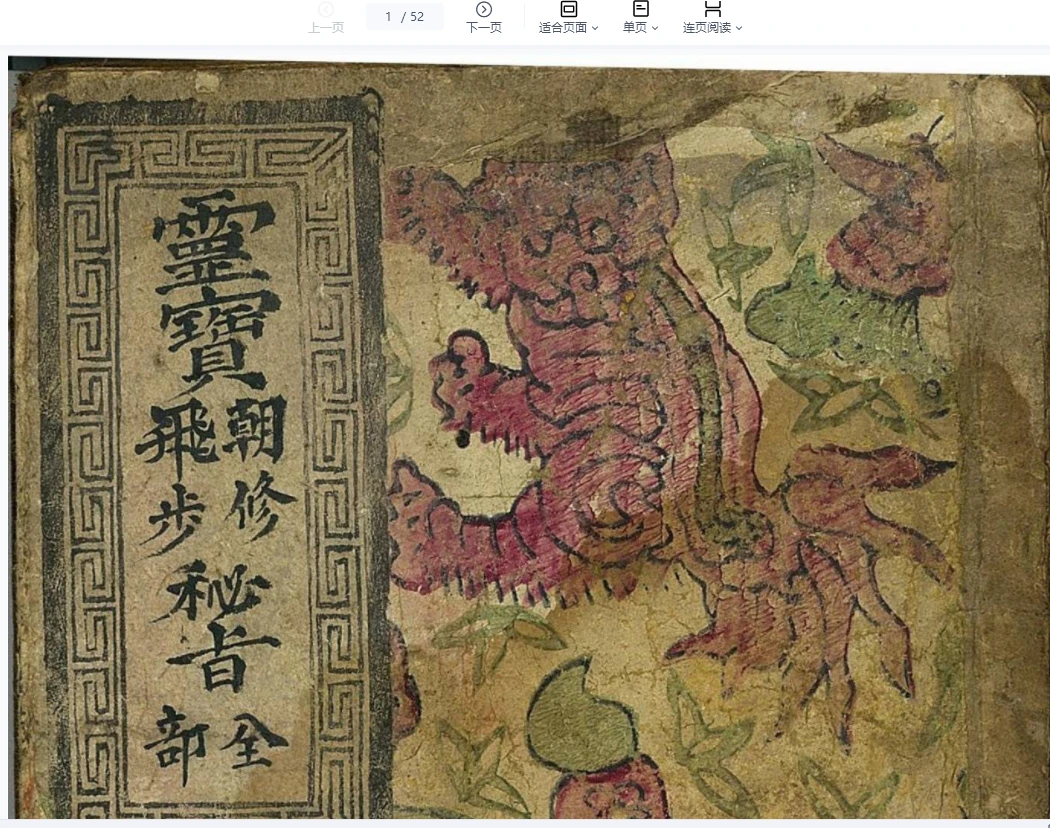 上一页 1 / 52 下一页 适合页面 单页 连页阅读
靈寶
朝修
飛步
秘旨
全部